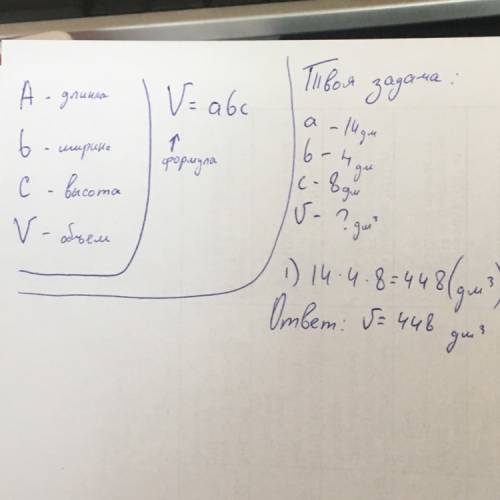 A - длинна
b - ширина
C - высота
V - объем
V = abc
↑
формула
Твоя задача:
a - 14 дм
b - 4 дм
c - 8 дм
V - ? дм³
1) 14 · 4 · 8 = 448 (дм³)
Ответ: V = 448 дм³